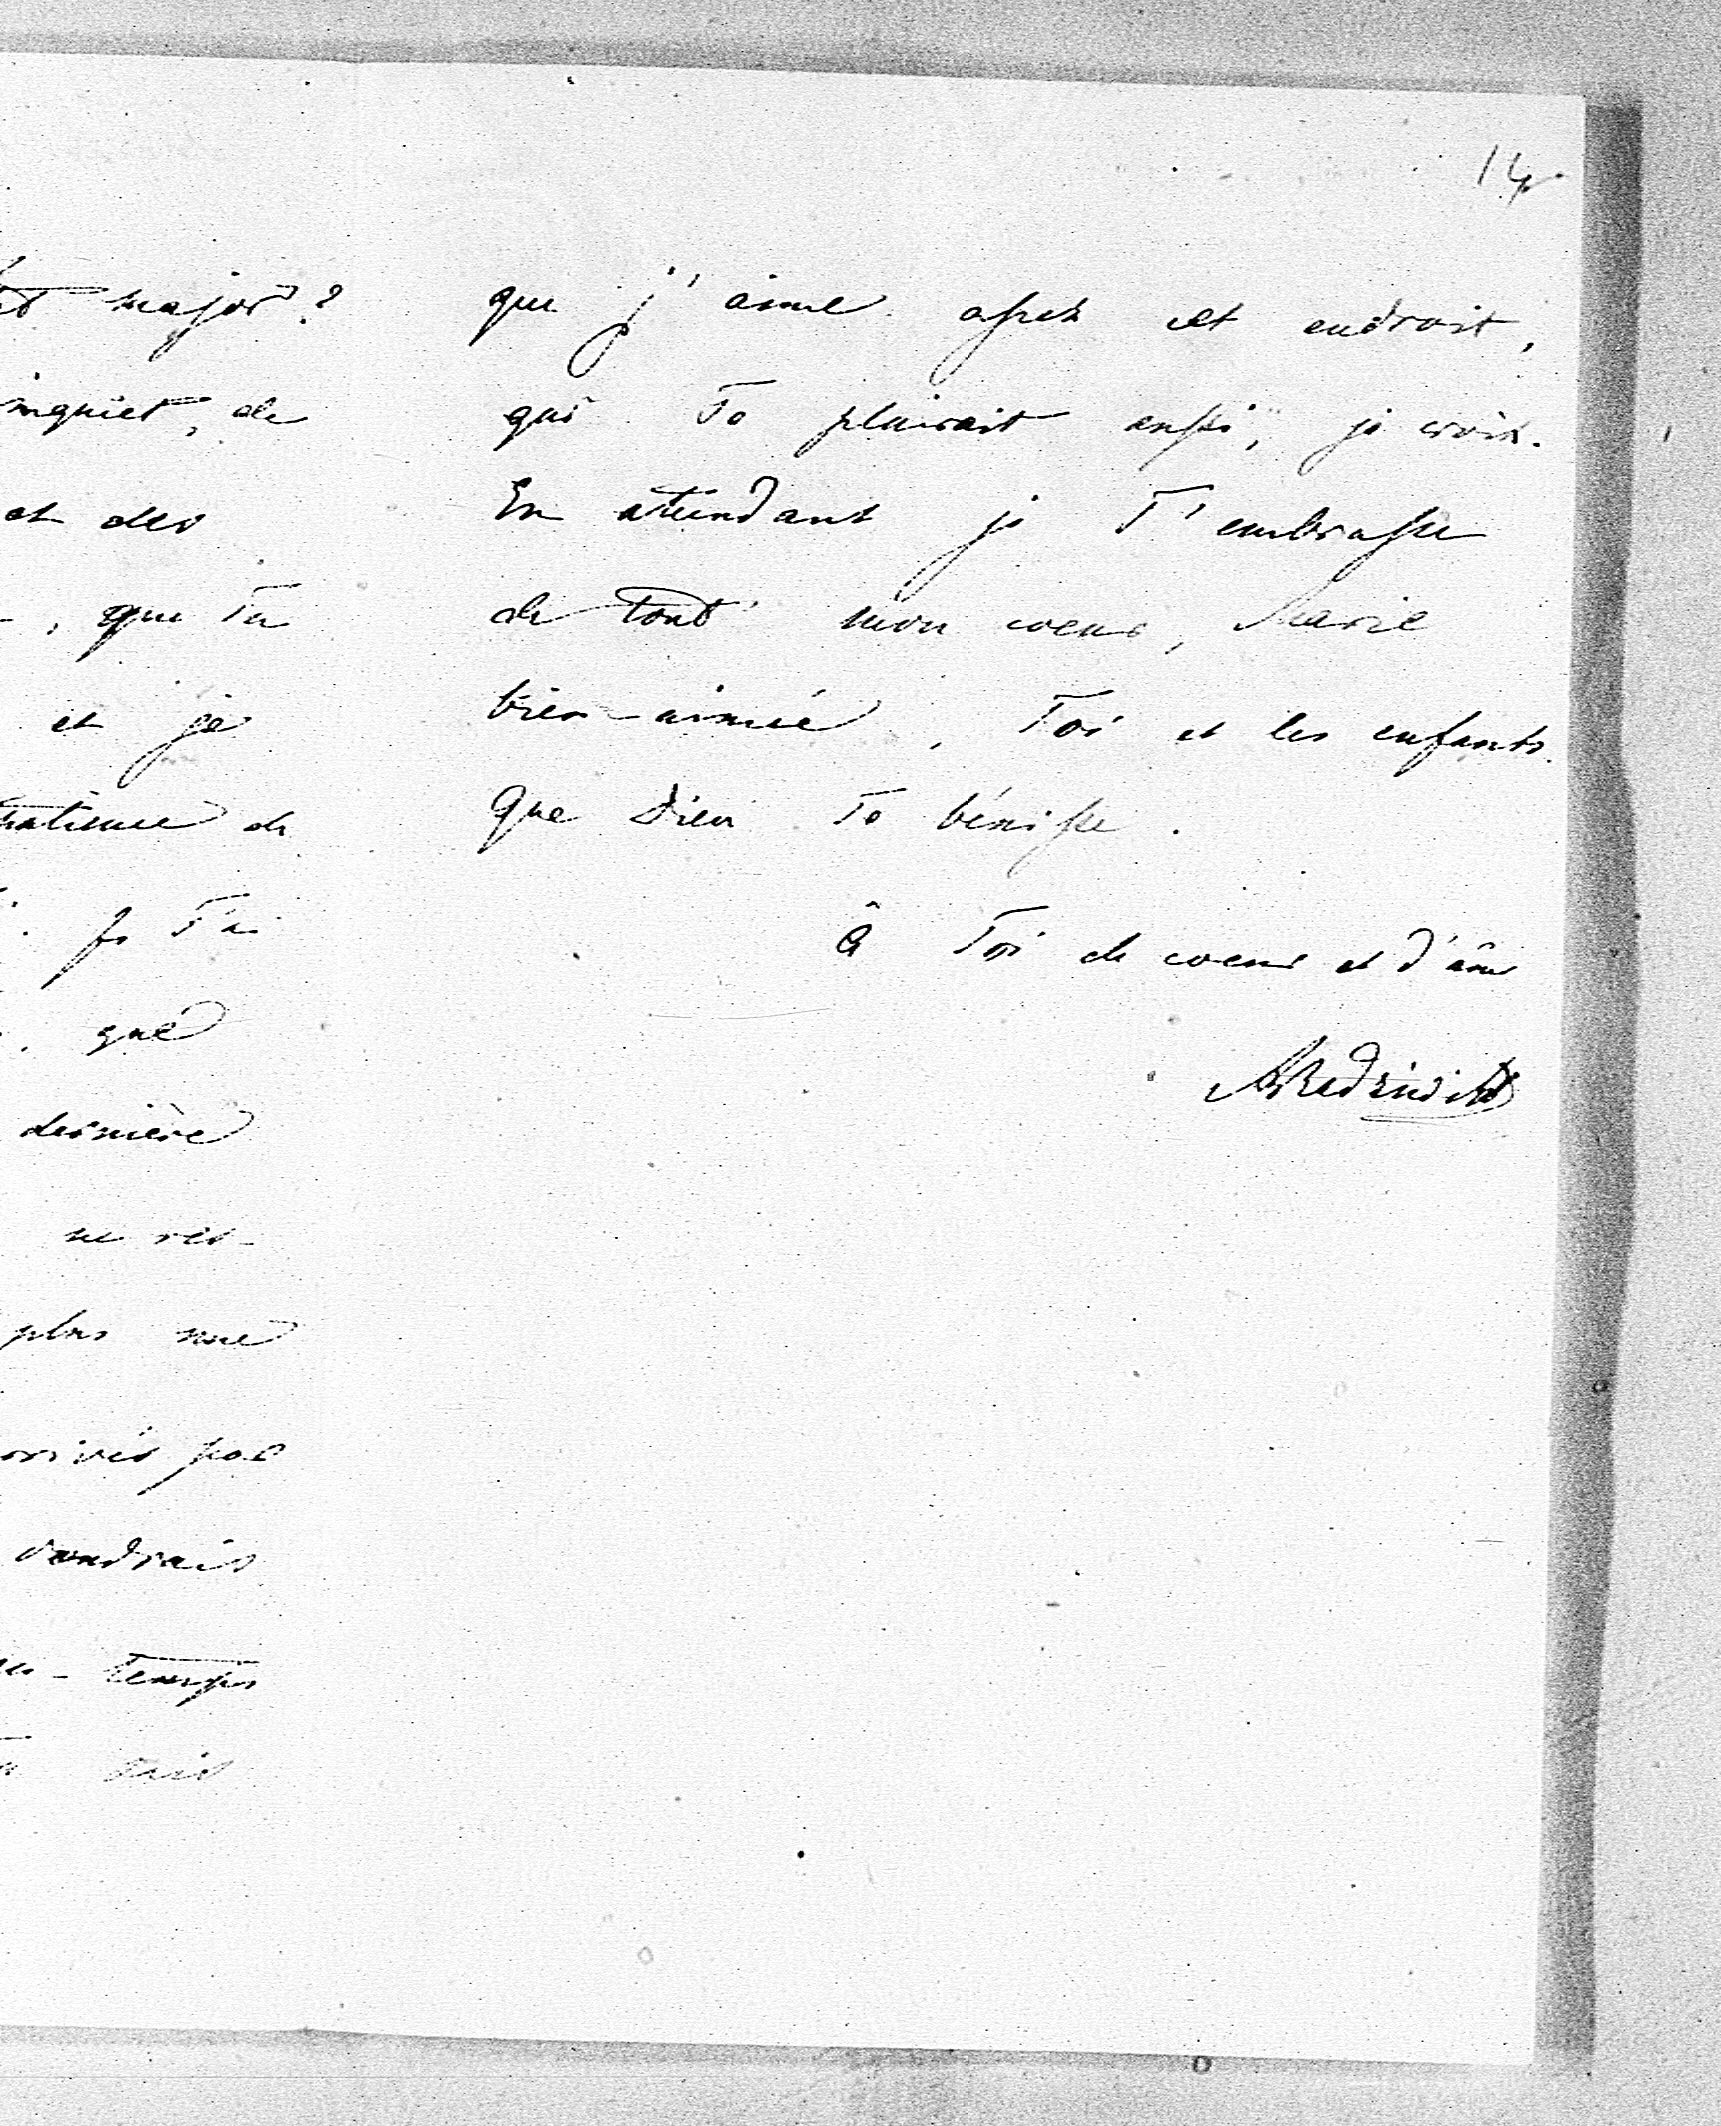 14
major?
inquiet, de
et des
, que Tu
et je
de
. Je T'ai
. que
dernière
ne res-
plus une
par
voudrais
- temps
que j'aime assez cet endroit,
qui Te plairait aussi, je crois.
En attendant je T'embrasse
de tout mon coeur, Marie
bien-aimée, Toi et les enfants.
Que Dieu Te bénisse.
À Toi de coeur et d'âme